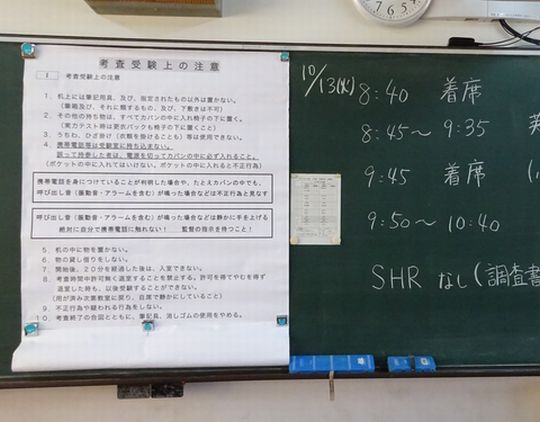 考査受験上の注意
1 考査受験上の注意
1.机上には筆記用具、及び、指定されたもの以外は置かない。
(筆箱及び、それに類するもの、及び、下敷きは不可)
2.その他の持ち物は、すべてカバンの中に入れ椅子の下に置く。
(実力テスト時は更衣バックも椅子の下に置くこと)
3.うちわ、ひざ掛け(衣類を掛けることも)等は使用できない。
4.携帯電話等は受験室に持ち込まない。
誤って持参した者は、電源を切ってカバンの中に必ず入れること。
(ポケットの中に入れてはいけない。ポケットの中に入れると不正行為)
携帯電話を身につけていることが判明した場合や、たとえカバンの中でも、
呼び出し音(振動音・アラームを含む)が鳴った場合などは不正行為と見なす
呼び出し音(振動音・アラームを含む)が鳴った場合などは静かに手を上げる
絶対に自分で携帯電話に触れない! 監督の指示を待つこと!
5.机の中に物を置かない。
6.物の貸し借りをしない。
7.開始後、20分を経過した後は、入室できない。
8.考査時間中許可無く退室することを禁止する。許可を得てやむを得ず
退室した時も、以後受験することができない。
(用が済み次第教室に戻り、自席で静かにしていること)
9.不正行為や疑われる行為をしない。
10.考査終了の合図とともに、筆記具、消しゴムの使用をやめる。
10/13(火)
8:40 着席
8:45〜9:35 英
9:45 着席
9:50〜10:40
SHR なし(調査書